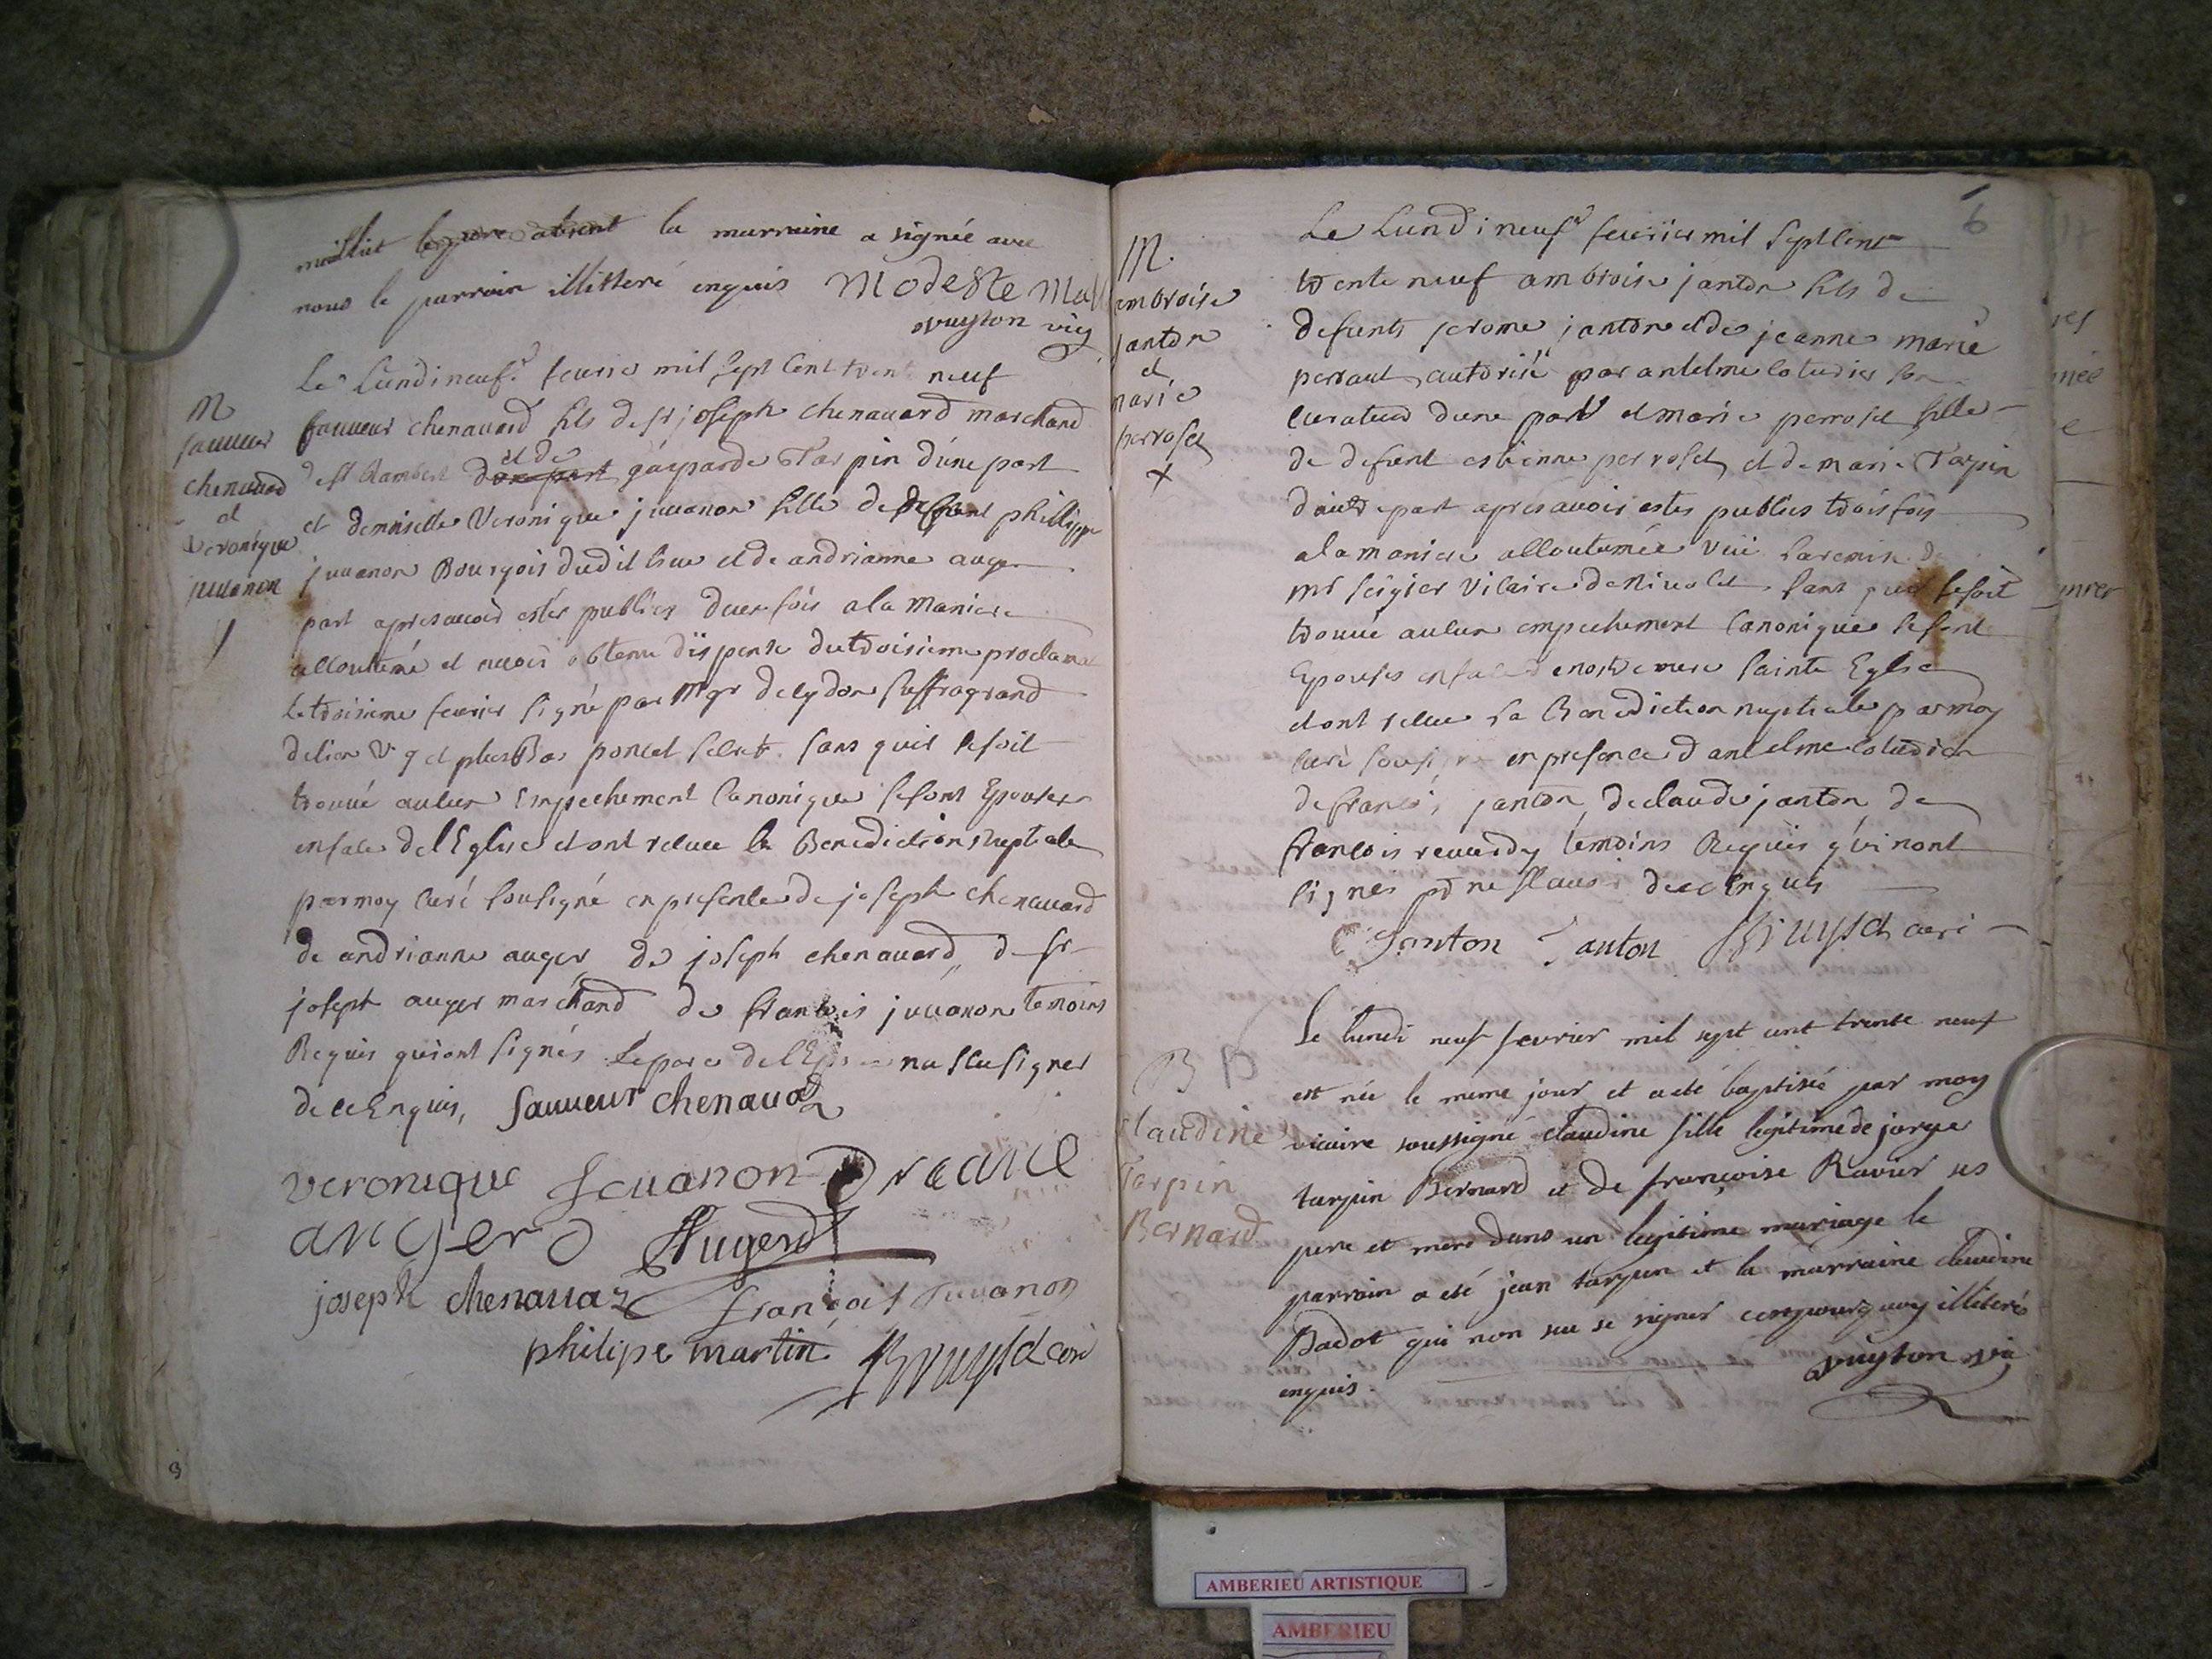 la marraine a signée avec
nous le parrain illitteré enquis Modeste Mal
vuyton vic
Le Lundi neuf fevrier mil sept Cent trent neuf
M
sauveur
chenavard
et
veronique
juvanon
sauveur chenavard fils de sr joseph chenavard marchand
de st Rambert d'une part et de gasparde Tarpin d'une part
et demoiselle Veronique juvanon fille de deffunt phillippe
juvanon Bourgois dudit lieu et de andrianne auger
part apres avoir estés publies deux fois a la maniere
accoutumé et avoir obtenu dispense du troisieme proclama
le troisieme fevrier signé par Mgr de sydon suffragrand
de lion v g et plus Bas poncet secret. sans quil se soit
trouvé aucun Empechement Canonique se sont Epouses
en face de l'Eglise et ont recue la Benediction nuptiale
par moy curé sousigné en presence de joseph chenavard
de andrianne auger de joseph chenavard, de sr
joseph auger marchand de francois juvanon temoins
Requis qui ont signés le pere de l'Ep na scu signer
de ce Enquis, sauveur chenavaz
veronique Jeuanon Dreane
anger Augerd
joseph chenavaz françois Juvanon
philipe martin Bruyset curé
6
M.
ambroise
janton
et
marie
perroset
+
Le Lundi neuf fevrier mil sept Cent
trente neuf ambroise janton fils de
defunts jerome janton et de jeanne marie
perraut, autorisé par antelme cotudier son
curateur dune part et marie perroset fille
de defunt estienne perroset et de marie Tarpin
dautre part apres avoir estes publies trois fois
a la maniere accoutumée vüe la remise de
mr seigier vicaire de nivolet sans quil se soit
trouvé aucun empechement Canonique se sont
Epouses en face de nostre mere sainte Eglise
et ont recue la Benediction nuptiale par moy
curé sousigné en presence d antelme cotudier
de francois janton, de claude janton, de
francois reverdy temoins Requis qui nont
signés pr ne scavoir de ce Enquis
C Janton Janton Bruyset curé
B
Claudine
Tarpin
Bernard
Le lundi neuf fevrier mil sept cent trente neuf
est née le meme jour et a eté baptisée par moy
vicaire soussigné claudine fille legitime de jorge
tarpin Bernard et de françoise Ravier ses
pere et mere dans un legitime mariage le
parrain a eté jean tarpin et la marraine claudine
Badot qui non sceu se signer illiterés
enquis. vuyton vic
AMBERIEU ARTISTIQUE
AMBERIEU